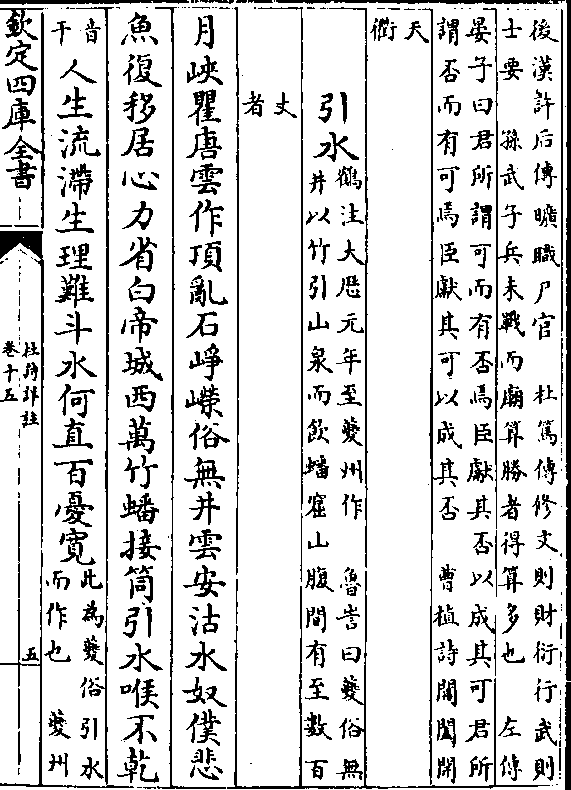 後漢許后傳曠職尸官　杜篤傳修文則財衍行武則
士要　孫武子兵未戰而廟算勝者得算多也　左傳
晏子曰君所謂可而有否焉臣獻其否以成其可君所
謂否而有可焉臣獻其可以成其否　曹植詩閶闔開
天
衢
引水
鶴注大厯元年至夔州作　魯訔曰夔俗無
井以竹引山泉而飲蟠窟山腹間有至數百
丈
者
月峽瞿唐雲作頂亂石崢嶸俗無井雲安沽水奴僕悲
魚復移居心力省白帝城西萬竹蟠接筒引水喉不乾
音
干
人生流滯生理難斗水何直百憂寛
此為夔俗引水
而作也　夔州
欽定四庫全書
杜詩詳註
卷十五
五